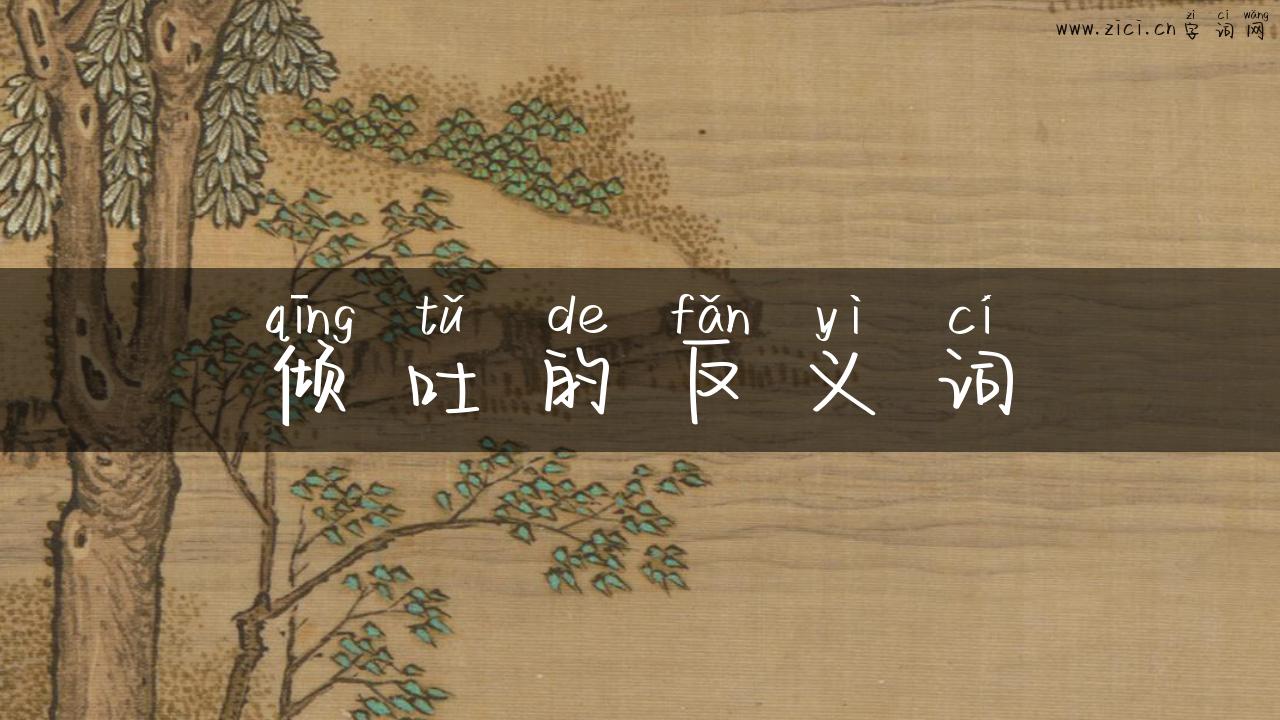 zì cí wǎng
www.zici.cn 字词网
qīng tǔ de fǎn yì cí
倾吐的反义词